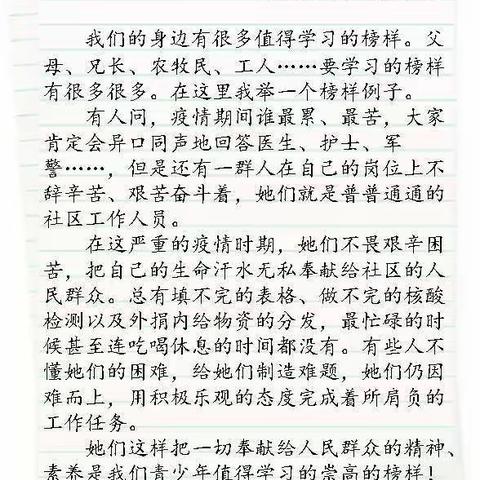 我们的身边有很多值得学习的榜样。父
母、兄长、农牧民、工人……要学习的榜样
有很多很多。在这里我举一个榜样例子。
有人问，疫情期间谁最累、最苦，大家
肯定会异口同声地回答医生、护士、军
警……，但是还有一群人在自己的岗位上不
辞辛苦、艰苦奋斗着，她们就是普普通通的
社区工作人员。
在这严重的疫情时期，她们不畏艰辛困
苦，把自己的生命汗水无私奉献给社区的人
民群众。总有填不完的表格、做不完的核酸
检测以及外捐内给物资的分发，最忙碌的时
候甚至连吃喝休息的时间都没有。有些人不
懂她们的困难，给她们制造难题，她们仍因
难而上，用积极乐观的态度完成着所肩负的
工作任务。
她们这样把一切奉献给人民群众的精神、
素养是我们青少年值得学习的崇高的榜样！